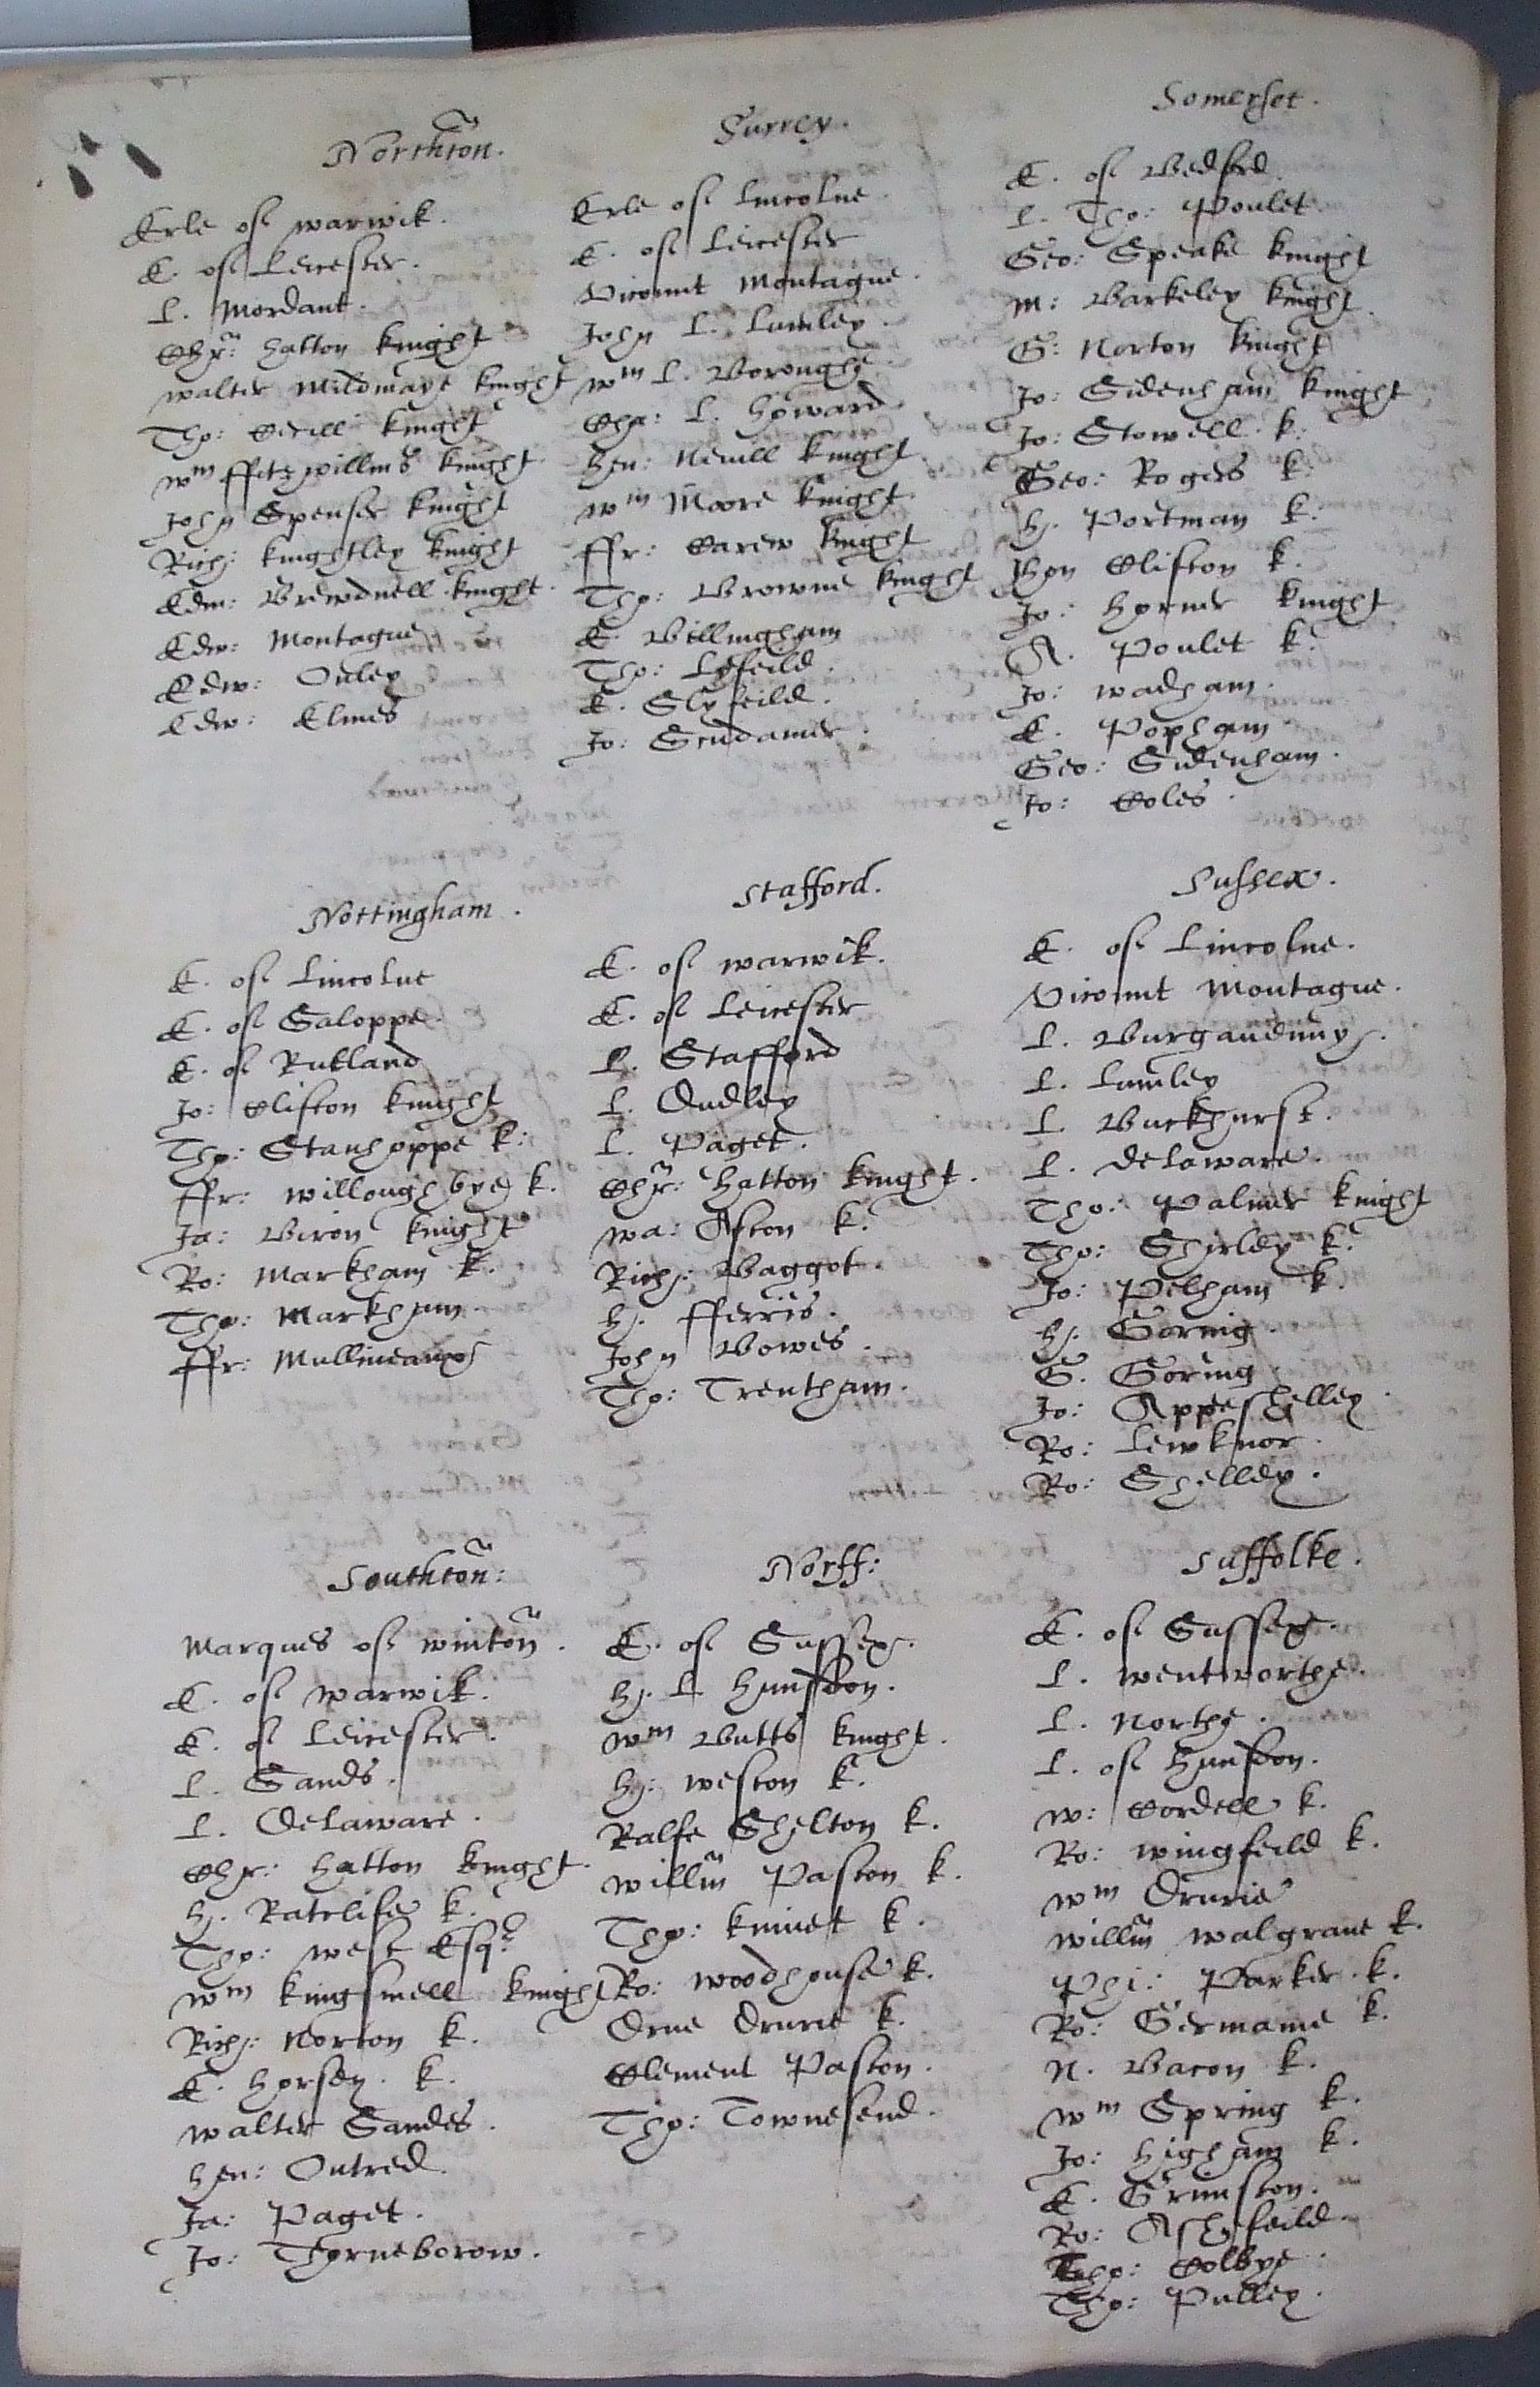 Northton.
Erle of warwik.
E. of Leicester.
L. Mordant.
Chr: Hatton knight
walter Mildmaye knight
Tho: Cecill knight
wm ffitzwillms knight
John Spenser knight
Rich: knightley knight
Edm: Brewdnell knight.
Edw: Montague
Edw: Onley
Edw: Elmes
Surrey.
Erle of Lincolne
E. of Leicester
Vicount Montague.
John L. Lumley.
wm L. Boroughe
Cha: L. Howard
Hen: Nevill knight
wm Moore knight.
ffr: Carew knight
Tho: Browne knight
E. Billingham
Tho: Lyfeild.
E. Slyfeild.
Jo: Scudamer.
Somerset.
E. of Bedford.
L. Tho: Poulet
Geo: Speake knight
M: Barkeley knight.
G: Norton knight
Jo: Sidenham knight
Jo: Stowell k.
Geo: Rogers k.
H. Portman k.
Jhon Clifton k.
Jo: Horner knight
A. Poulet k.
Jo: wadham.
E. Popham
Geo: Sidenham.
Jo: Coles.
Nottingham.
E. of Lincolne
E. of Saloppe.
E. of Rutland
Jo: Clifton knight
Tho: Stanhoppe k:
ffr: willoughbye k.
Ja: Biron knight
Ro: Markham k.
Tho: Markham.
ffr: Mullineaux
Stafford.
E. of warwik.
E. of Leicester
L. Stafford
L. Dudley
L. Paget.
Chr: Hatton knight.
wa: Aston k.
Rich: Baggot.
H. fferris.
John Bowes.
Tho: Trentham.
Sussex.
E. of Lincolne.
Vicount Montague.
L. Burgaudnny.
L. Lumley
L. Buckhurst.
L. Delaware.
Tho: Palmer knight
Tho: Shirley k.
Jo: Pelham k.
H. Goring.
G. Goring
Jo: Appeshelley.
Ro: Lewknor.
Ro: Shelley.
Southton:
Marques of winton.
E. of warwik.
E. of Leicester.
L. Sands.
L. Delaware.
Chr: Hatton knight.
H. Ratclife k.
Tho: west Esqr
wm kingsmell knight
Rich: Norton k.
E. Horsey. k.
walter Sandes.
Hen: Outred.
Ja: Paget.
Jo: Thorneborow.
Norff:
E. of Sussex.
H. L. Hunsdon.
wm Butts knight.
H: weston k.
Ralfe Shelton k.
willm Paston k.
Tho: knivet k.
Ro: woodhouse k.
Drue Drurie k.
Clement Paston.
Tho: Townesend.
Suffolke.
E. of Sussex.
L. wentworthe.
L. Northe.
L. of Hunsdon.
w: Cordell k.
Ro: wingfeild k.
wm Drurie
willm walgrave k.
Phi: Parker. k.
Ro: Germaine k.
N. Bacon k.
wm Spring k.
Jo: Higham k.
E. Grimston.
Ro: Ashfeild.
Tho: Colbye.
Tho: Pulley.